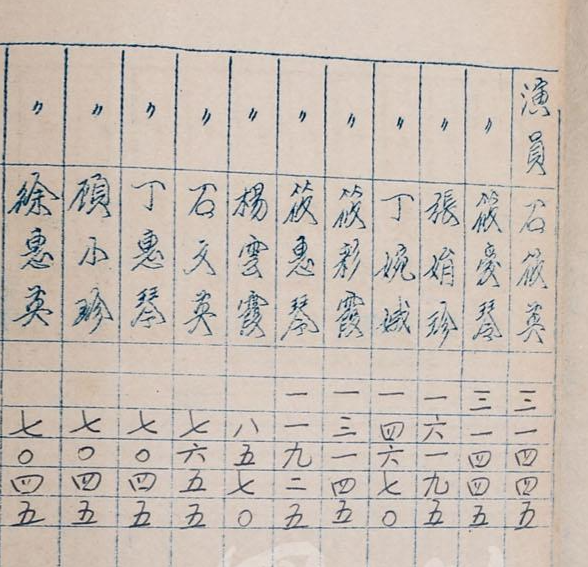 演員 石筱英 三一四四五
〃 筱愛琴 三一四四五
〃 張娟珍 一六一九五
〃 丁婉娥 一四六七〇
〃 筱彩霞 一三一四五
〃 筱惠琴 一一九二五
〃 楊雲霞 八五七〇
〃 石文英 七六五五
〃 丁惠琴 七〇四五
〃 顧小珍 七〇四五
〃 徐惠英 七〇四五